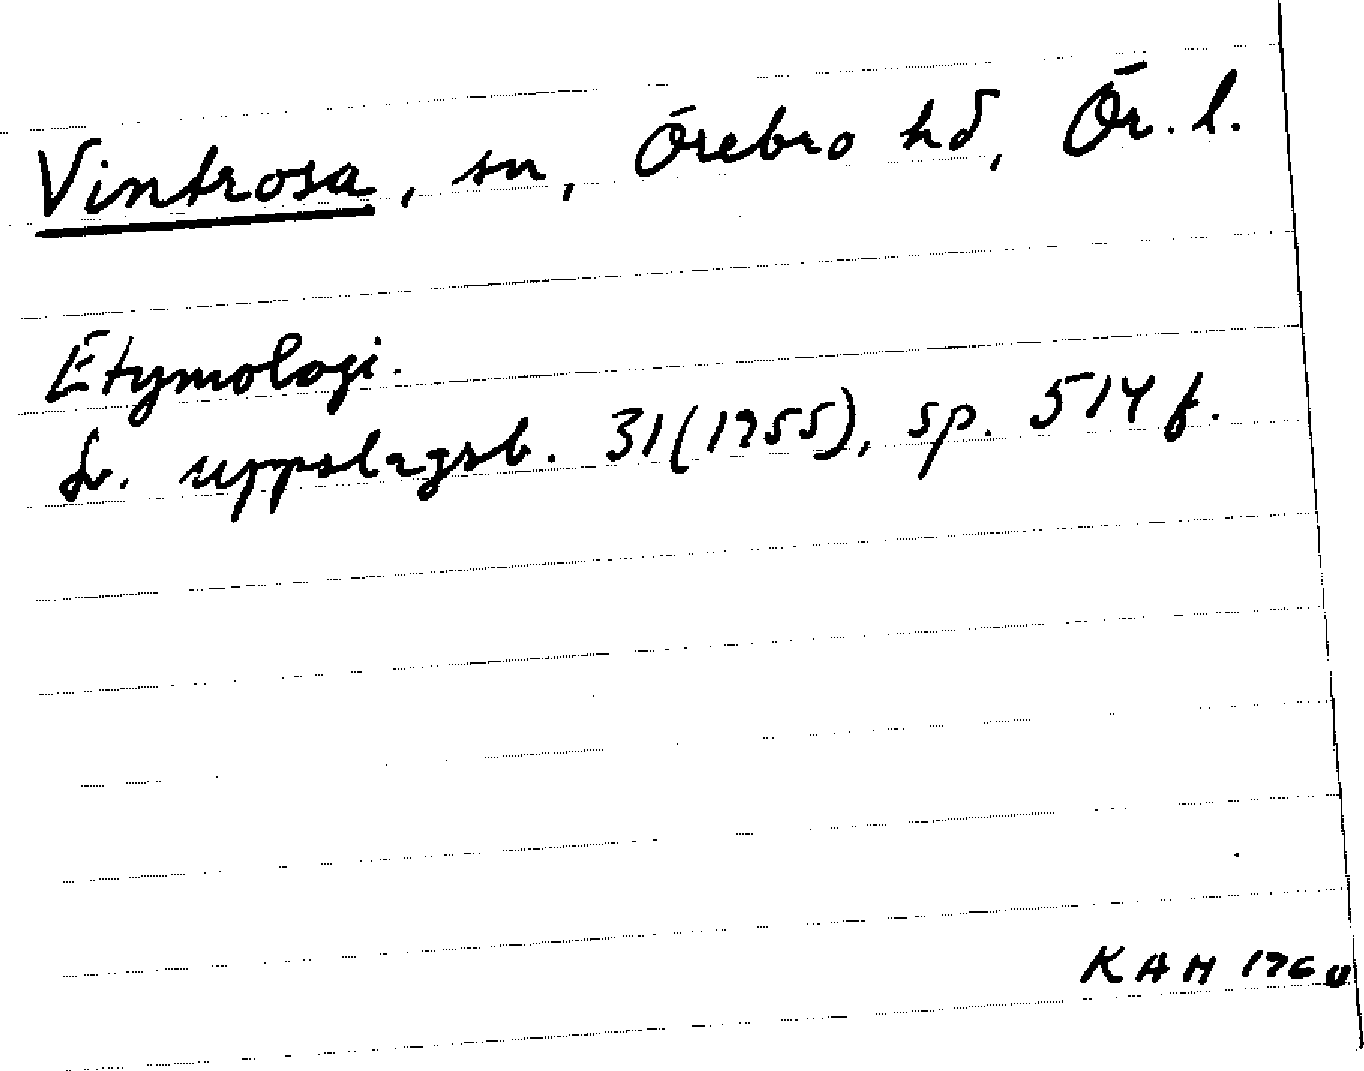 Vintrosa, sn, Örebro hd, Ör. l.
Etymologi.
Sv. uppslagsb. 31(1955), sp. 514 f.
KAH 1960